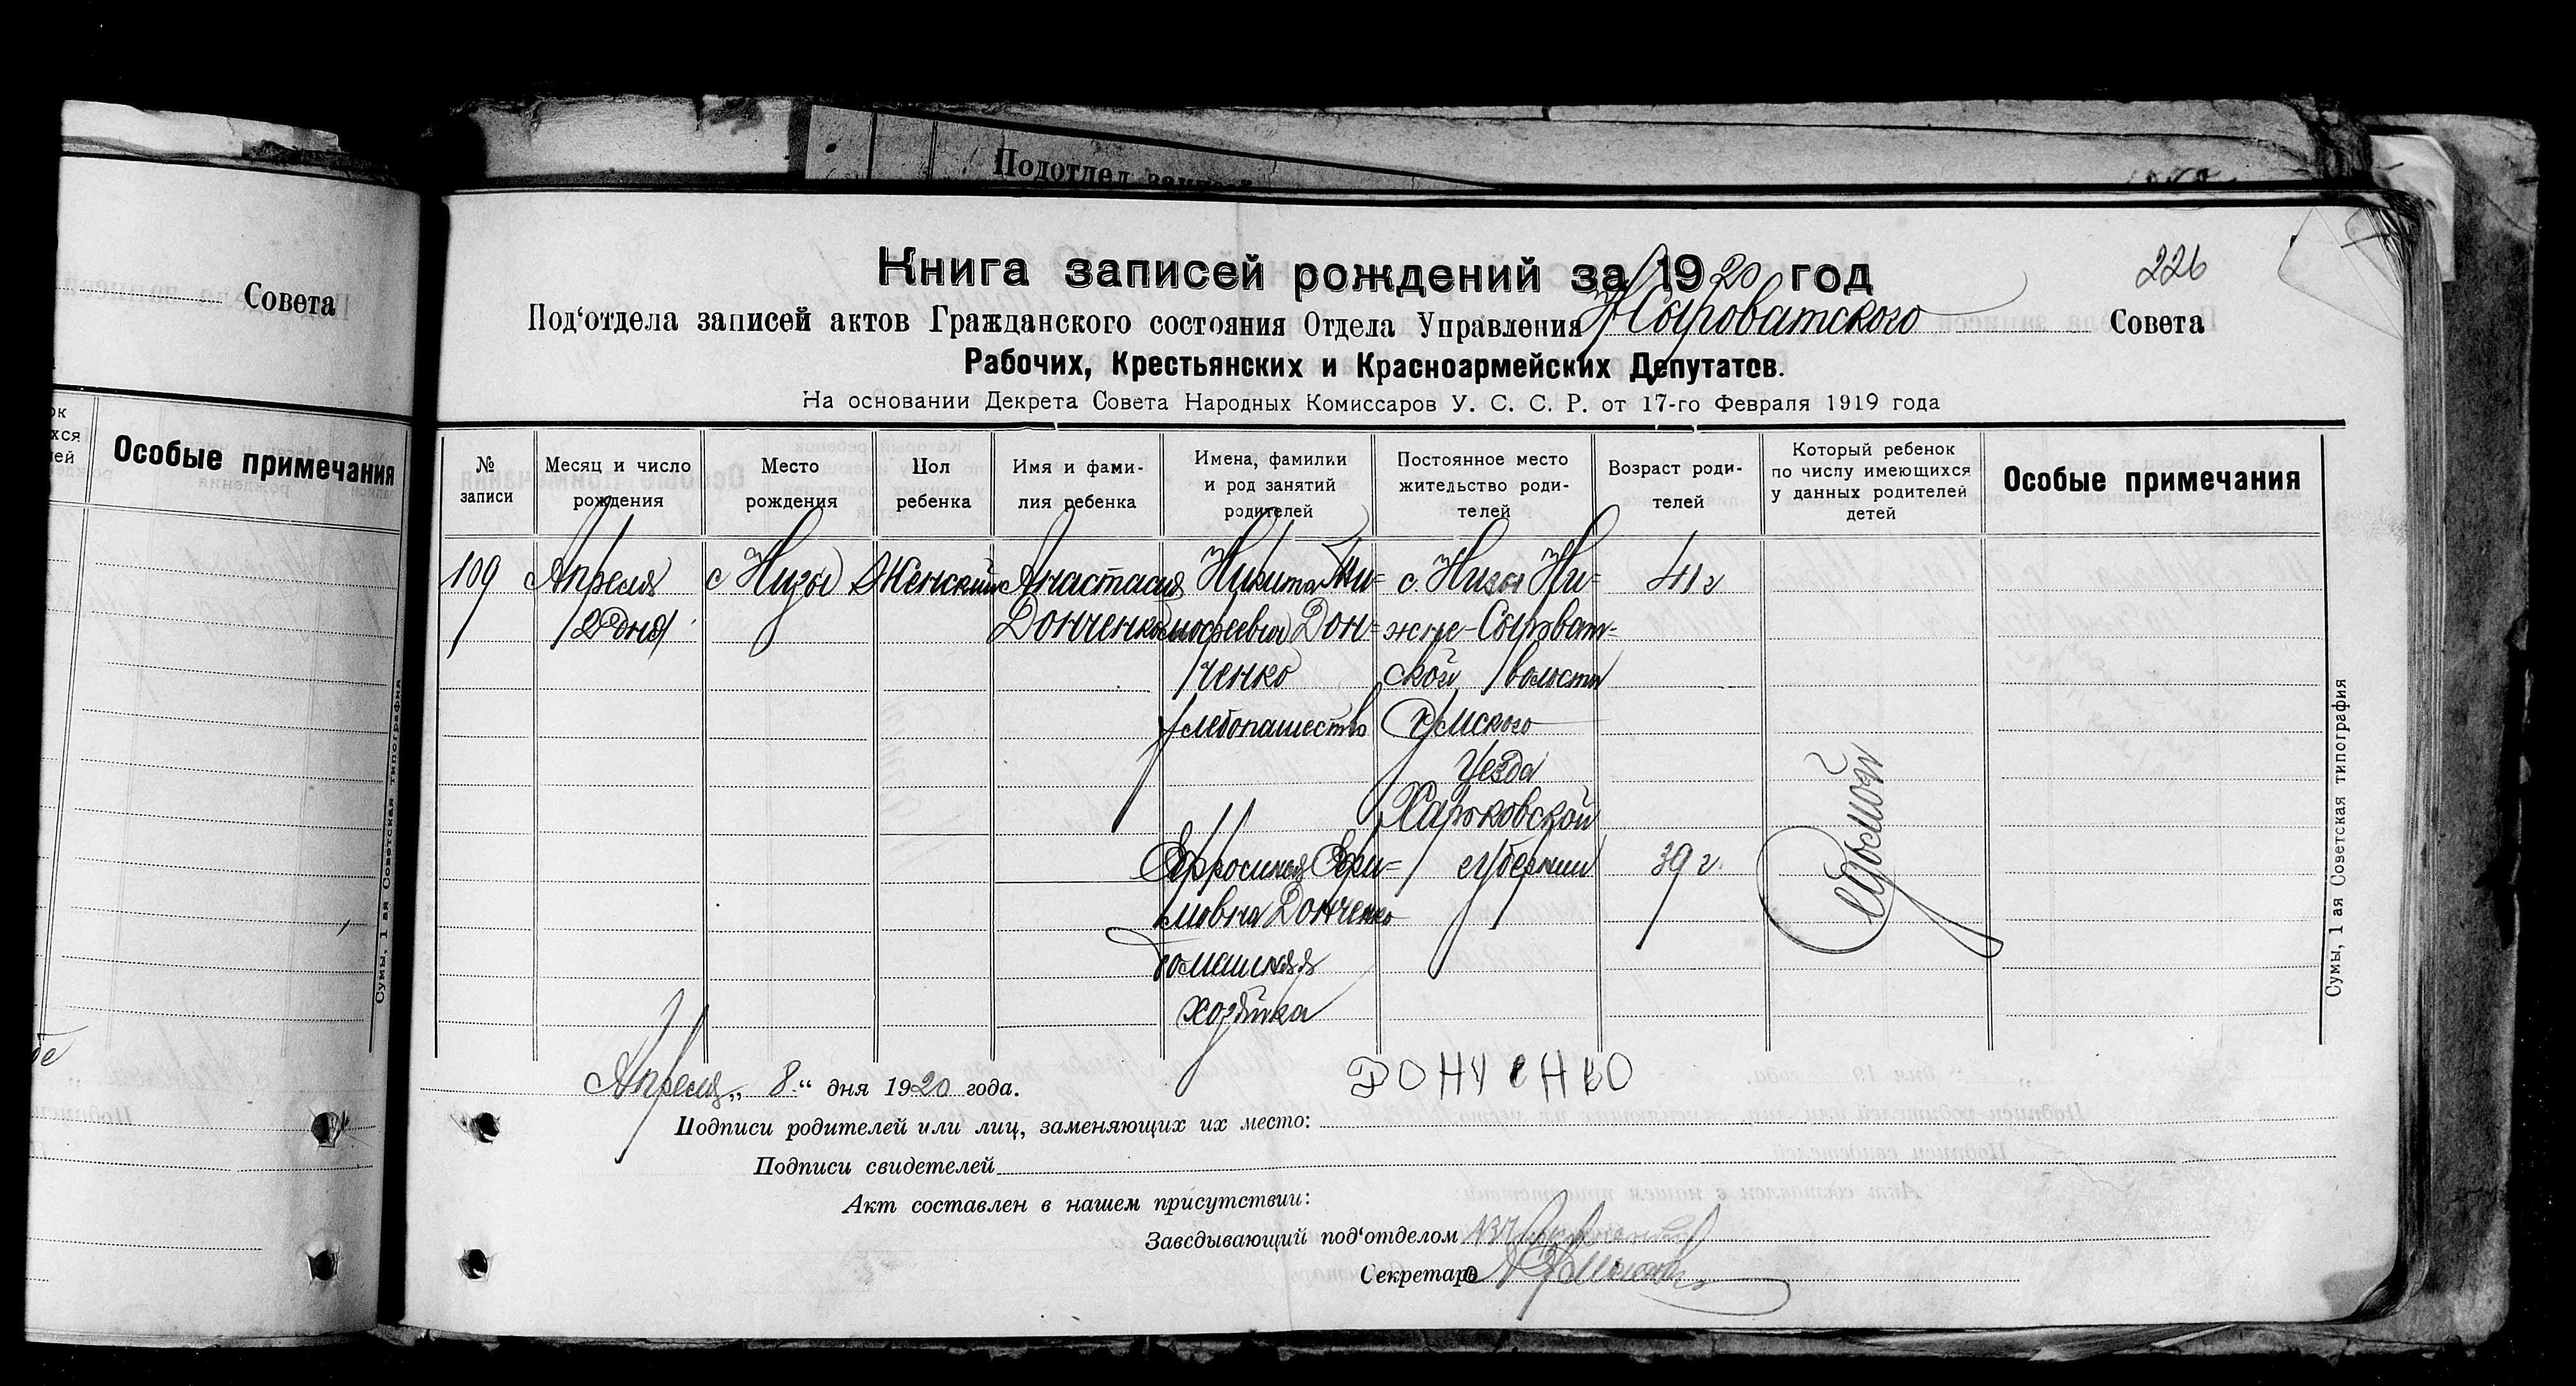 Подотдел
Совета
Особые примечания
Сумы, 1 ая Советская типография
226
Книга записей рождений за 1920 год
Под‘отдела записей актов Гражданского состояния Отдела Управления Н Сыроватского Совета
Рабочих, Крестьянских и Красноармейских Депутатов.
На основании Декрета Совета Народных Комиссаров У. С. С. Р. от 17-го Февраля 1919 года
№ записи
Месяц и число рождения
Место рождения
Пол ребенка
Имя и фами-лия ребенка
Имена, фамилии и род занятий родителей
Постоянное место жительство роди-телей
Возраст роди-телей
Который ребенок по числу имеющихся у данных родителей детей
Особые примечания
109
Апреля
дня
с Низы
Женский
Анастасия
Донченко
Никита Ти=
мофеевич Дон=
ченко
хлебопашество
Ефросиния Ефи=
мовна Донченко
домашняя
хозяйка
с. Низы Ни=
жне-Сыроват=
ской волости
Сумского
Уезда
Харьковской
губернии
41 г
39 г.
седьмой
Сумы, 1 ая Советская типография
Апреля „ 8 “ дня 1920 года.
Донченко
Подписи родителей или лиц, заменяющих их место:
Подписи свидетелей
Акт составлен в нашем присутствии:
Заведывающий под‘отделом
Секретарь